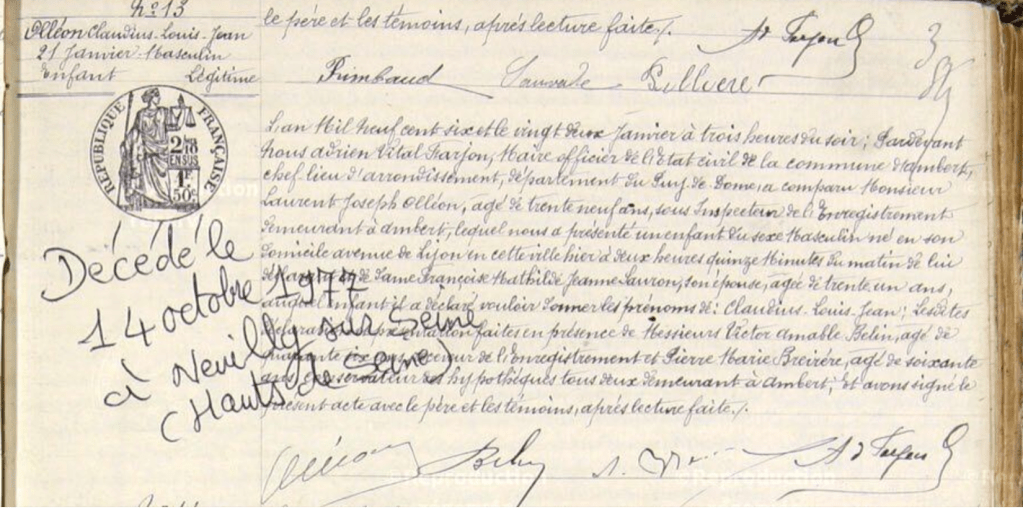 No 13
Olléon Claudius-Louis-Jean
21 Janvier-Masculin
Enfant Légitime
RÉPUBLIQUE FRANÇAISE
2/8 EN SUS
1F
50c
Décédé le
14 octobre 1977
à Neuilly sur Seine
(Hauts de Seine)
le père et les témoins, après lecture faite./.
Ad Farjon
Rimbaud Sauvade
L'an Mil neuf cent six et le vingt deux Janvier à trois heures du soir; Pardevant
Nous Adrien Vital Farjon, Maire officier de l'Etat civil de la commune d'Ambert,
chef lieu d'arrondissement, département du Puy-de-Dome, a comparu Monsieur
Laurent Joseph Olléon, agé de trente neuf ans, sous Inspecteur de l'Enregistrement
demeurant à Ambert, lequel nous a présenté un enfant du sexe Masculin né en son
domicile avenue de en cette ville hier à deux heures quinze Minutes du matin de lui
de Dame Françoise Mathilde Jeanne Sauron, son épouse, agée de trente un ans,
auquel enfant il a déclaré vouloir donner les prénoms de: Claudius-Louis-Jean; Lesdites
déclaration et présentation faites en présence de Messieurs Victor Amable Belin, agé de
quarante six ans, receveur de l'Enregistrement et Pierre Marie Breirère, agé de soixante
ans, conservateur des hypothèques tous deux demeurant à Ambert; et avons signé le
présent acte avec le père et les témoins, après lecture faite./.
Olléon Belin Ad Farjon